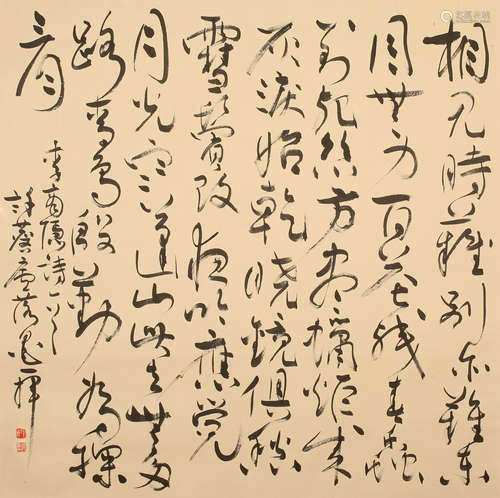 相见時難别亦難东
风無力百花残春蚕
到死丝方尽蠟炬成
灰淚始乾晓镜但愁
雲鬓改夜吟應觉
月光寒蓬山此去無多
路青鸟殷勤为探
看
李商隐詩一首